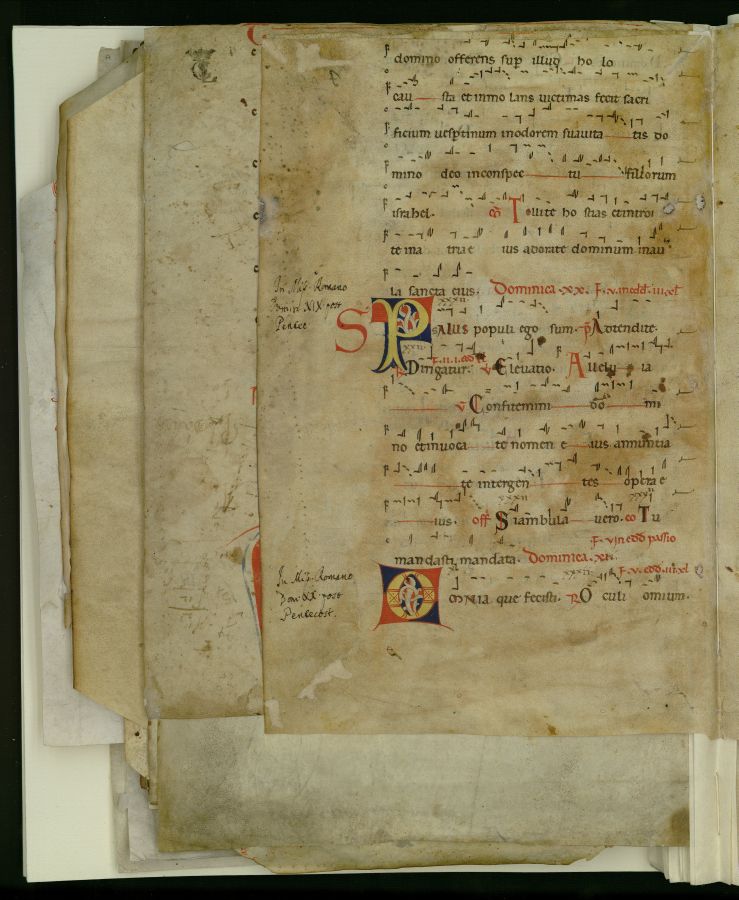 domino offerens sup illud ho lo
cau sta et inmo lans uictimas fecit sacri
ficium uesptinum inodorem suauita tis do
mino deo inconspec tu filiorum
israhel. co Tollite ho stias etintroi
te in a tria e ius adorate dominum in au
la sancta eius. Dominica .xx.
In Miss. Romano
Domin. XIX post
Pentec
S PSALUS populi ego sum. ps Adtendite.
R Dirigatur. V Eleuatio. Alleluia
V Confitemini do mi
no et inuoca te nomen e ius annuntia
te inter gen tes opera e
ius. off Si ambula uero. co Tu
F. vi in edd passio
mandasti mandata. Dominica .xxi.
In Miss. Romano
Dom XX post
Pentecost.
OMNIA que fecisti. R Oculi omium.